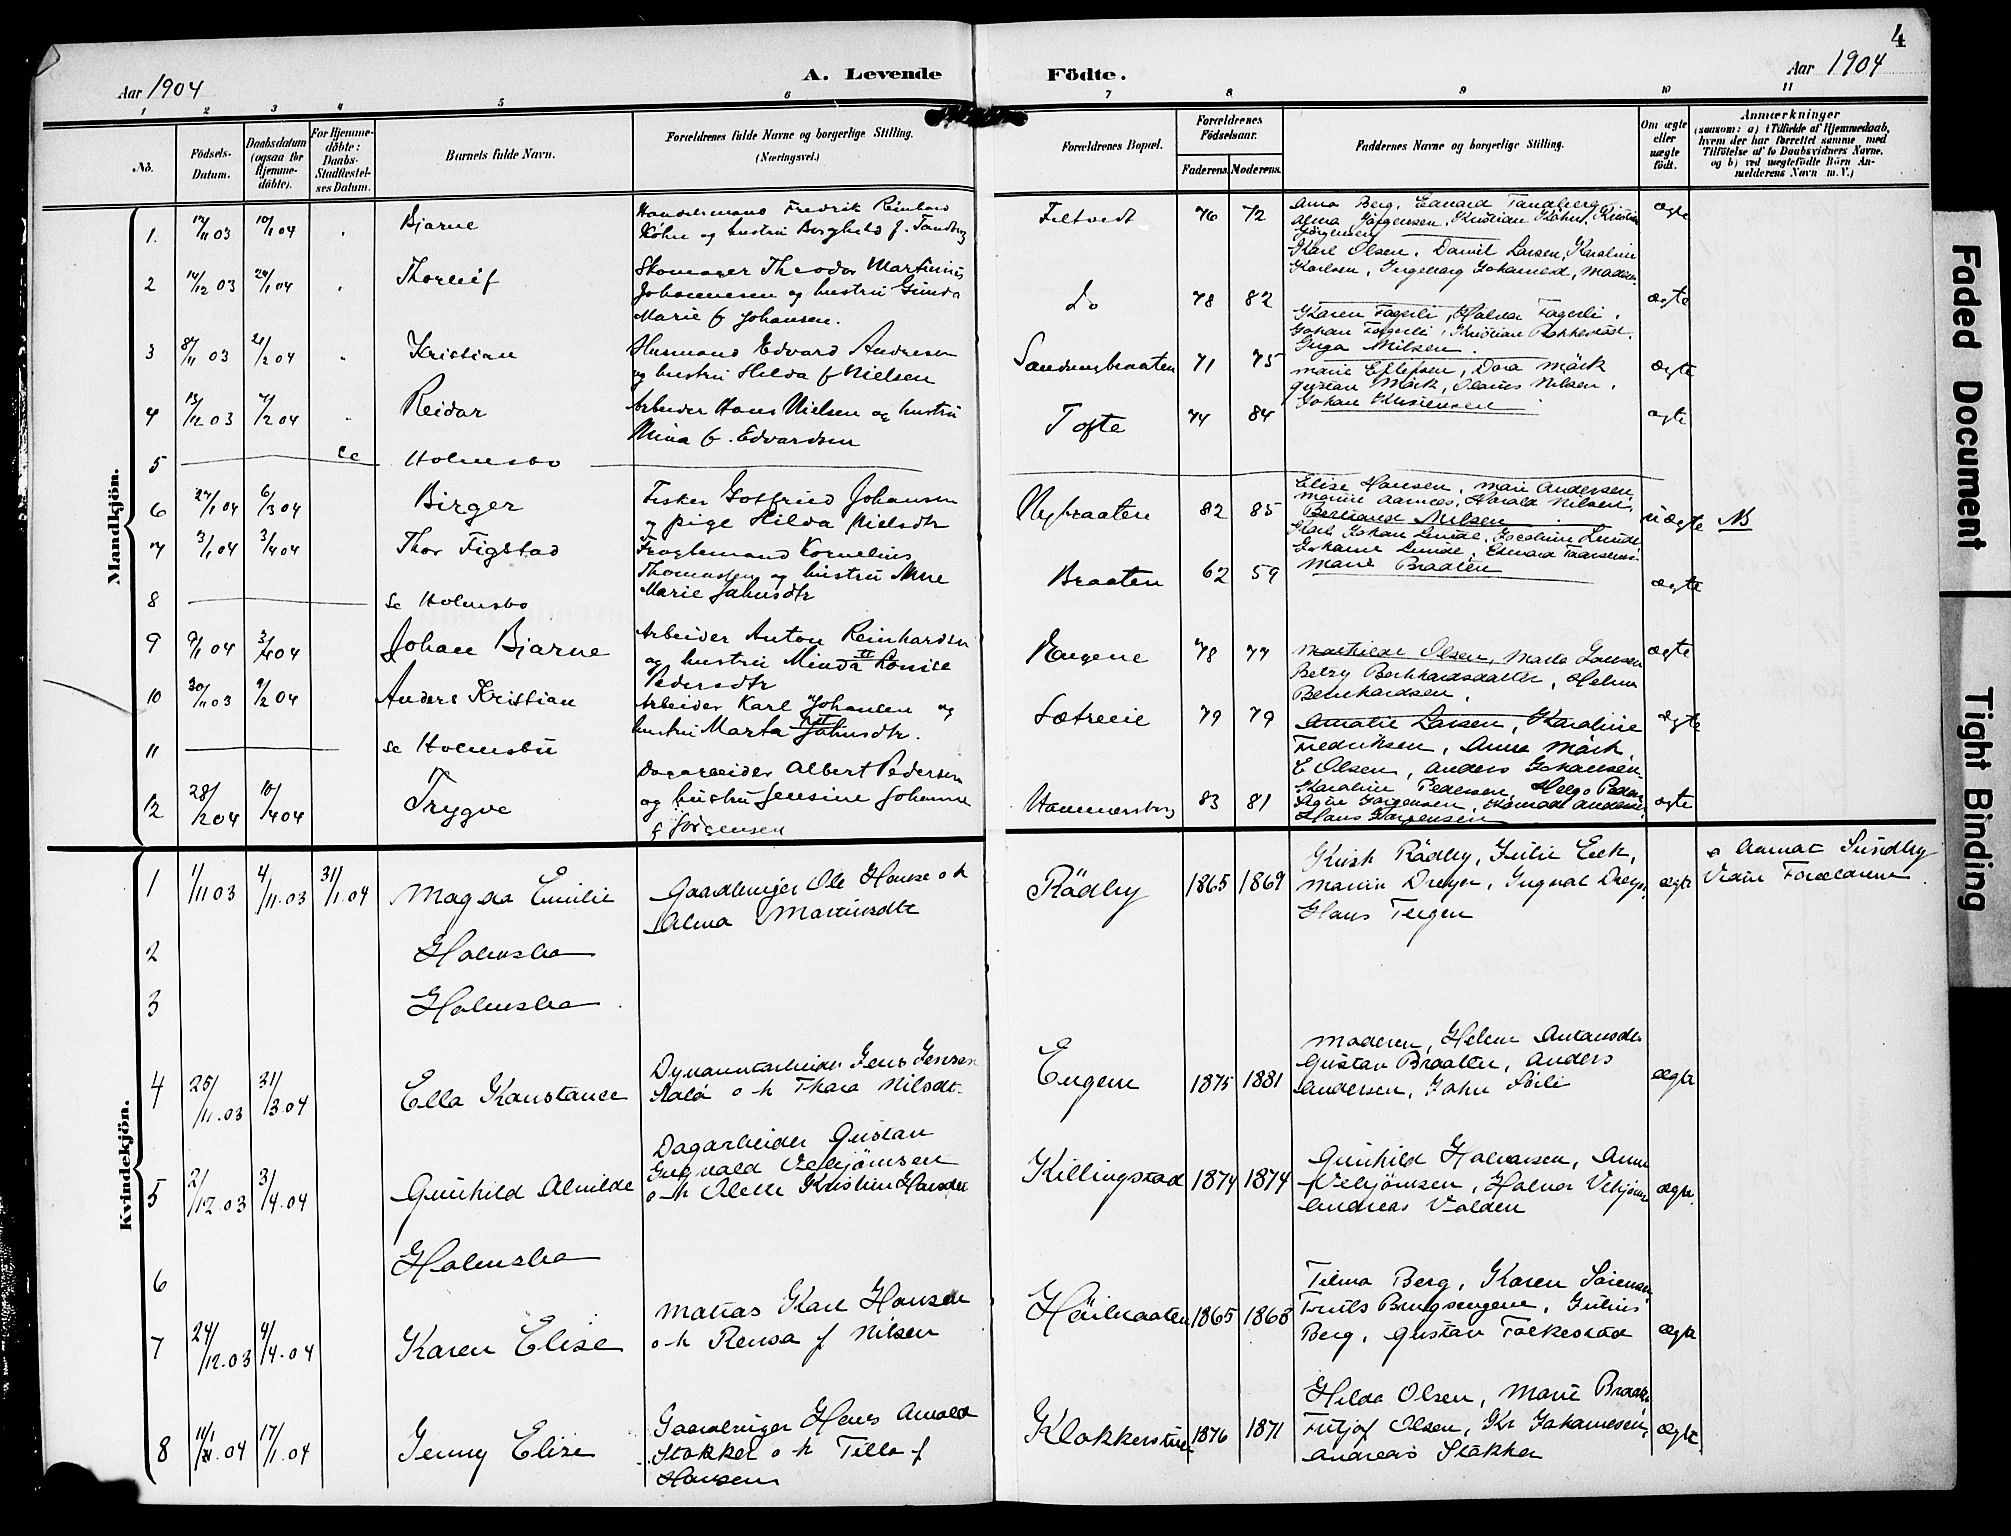 4
Aar 1904
A. Levende
Födte.
Aar 1904
1 2 3 4 5 6 7 8 9 10 11
No.
Födsels-
Datum.
Daabsdatum
(ogsaa for
Hjemme-
döbte).
For Hjemme-
döbte:
Daabs-
Stadfæstel-
ses Datum.
Barnets fulde Navn.
Forældrenes fulde Navne og borgerlige Stilling.
(Næringsvei.)
Forældrenes Bopæl.
Forældrenes
Födselsaar.
Faderens. Moderens.
Faddernes Navne og borgerlige Stilling.
Om ægte
eller
uægte
födt.
Anmærkninger
(saasom: a) i Tilfælde af Hjemmedaab,
hvem der har forrettet samme med
Tilföielse af to Daabsvidners Navne,
og b) ved uægtefödte Börn An-
melderens Navn m. V.)
Mandkjön.
1. 12/11 03 10/1 04 Bjarne
Handelsmand Fredrik Reinhard
Köhn og hustru Borghild f. Tandberg
Filtvedt 76 72
Anna Berg, Edvard Tandberg
Alma Jörgensen, Kristian Köhn, Kristian
Jörgensen
ægte
2 14/12 03 24/1 04 Thorleif
Skomager Theodor Martinius
Johannesen og hustru Gunda
Marie f. Johansen.
Do 78 82
Karl Olsen, Daniel Larsen, Karoline
Karlsen, Ingeborg Johannesd, Moderen
ægte
3 8/11 03 21/2 04 Kristian
Husmand Edvard Andresen
og hustru Hilda f. Nielsen
Sandungbraaten 71 75
Karen Fagerli, Halvor Fagerli,
Johan Fagerli, Kristian Rokkestad.
Inga Nilsen.
ægte
4 13/12 03 7/2 04 Reidar
Arbeider Hans Nielsen og hustru
Mina f. Edvardsen
Tofte 74 84
Marie Ellefsen, Dora Mörk
Gustav Mörk, Olaves Nilsen,
Johan Kristensen
ægte
5 Se Holmsbo
6 27/1 04 6/3 04 Birger
Fisker Gotfried Johansen
og pige Hilda Nielsdtr
Nybraaten 82 85
Elise Hansen, Mari Andersen
Marie Aamots, Harald Nilsen,
Bertianse Nilsen
uægte NB
7 3/1 04 3/4 04 Thor Figstad
Fragtemand Kornelius
Thomassen og hustru Anne
Marie Jahnsdtr
Braaten 62 59
Karl Johan Lunde, Jocobine Lunde
Johanne Lunde, Edvard Taarstensen
Marie Braaten
ægte
8 Se Holmsbo
9 9/1 04 3/4 04 Johan Bjarne
Arbeider Anton Reinhardsen
og hustru Minda Lovise
Pedersdtr
Engene 78 77
Mathilde Olsen, Marta Larsen
Betzy Bernhardsdatter, Helene
Bernhardsen.
ægte
10 30/11 03 9/2 04 Anders Kristian
Arbeider Karl Johansen og
hustru Marta Jahnsdtr.
Sætreeie 79 79
Amalie Larsen, Karoline
Fredriksen, Anna Mörk,
E Olsen, Anders Johansen
ægte
11 Se Holmsbu
12 28/2 04 10/4 04 Trygve
Dagarbeider Albert Pedersen
og hustru Jensine Johanne
f Jörgensen
Hammersborg 83 81
Karoline Pedersen, Helga Peders
Jörgensen, Konrad Andersen
Hans Jörgensen
ægte
Kvindekjön.
1 1/11 03 4/11. 03 31/1. 04 Magda Emilie
Gaardbruger Ole Hansen o h
Alma Martinsdtr
Rödby 1865 1869
Krist. Rödby, Julie Eek,
Marin Dreyer, Ingval Dreyer,
Hans Tegen
ægte
a Aamot Sundby
Vidne Forældrene
2 Holmsbo
3 Holmsbo
4 25/11. 03 31/3 04 Ella Konstance
Dynamitarbeider Jens Jensen
Stalö o h Thora Nilsdt.
Engene 1875 1881
Moderen, Helene Antonsdtr
Gustav Braaten, Anders
Andersen, John Sörli
ægte
5 2/12. 03 3/4. 04 Gunhild Alvilde
Dagarbeider Gustav
Ingvald Vebjörnsen
o h Olette Kristine Hansdtr
Killingstad 1874 1874
Gunhild Halvorsen, Anne
Vebjörnsen, Halvor Vebjörns
Andreas Volden
ægte.
6 Holmsbo
7 24/12. 03 4/4. 04 Karen Elise
Matros Karl Hansen
o h Rensa f Nilsen
Höibraaten 1865 1868
Tilma Berg, Karen Sörensen
Truls Brugsengene, Julius
Berg, Gustav Folkestad
ægte
8 11/1. 04 17/1. 04 Jenny Elise
Gaardbruger Hans Arnold
Stokker o h Tilla f
Hansen
Klokkerstue 1876 1871
Hilda Olsen, Marie Braaten
Fritjof Olsen, Kr Johannesen,
Andreas Stokker
ægte
Faded Document
Tight Binding